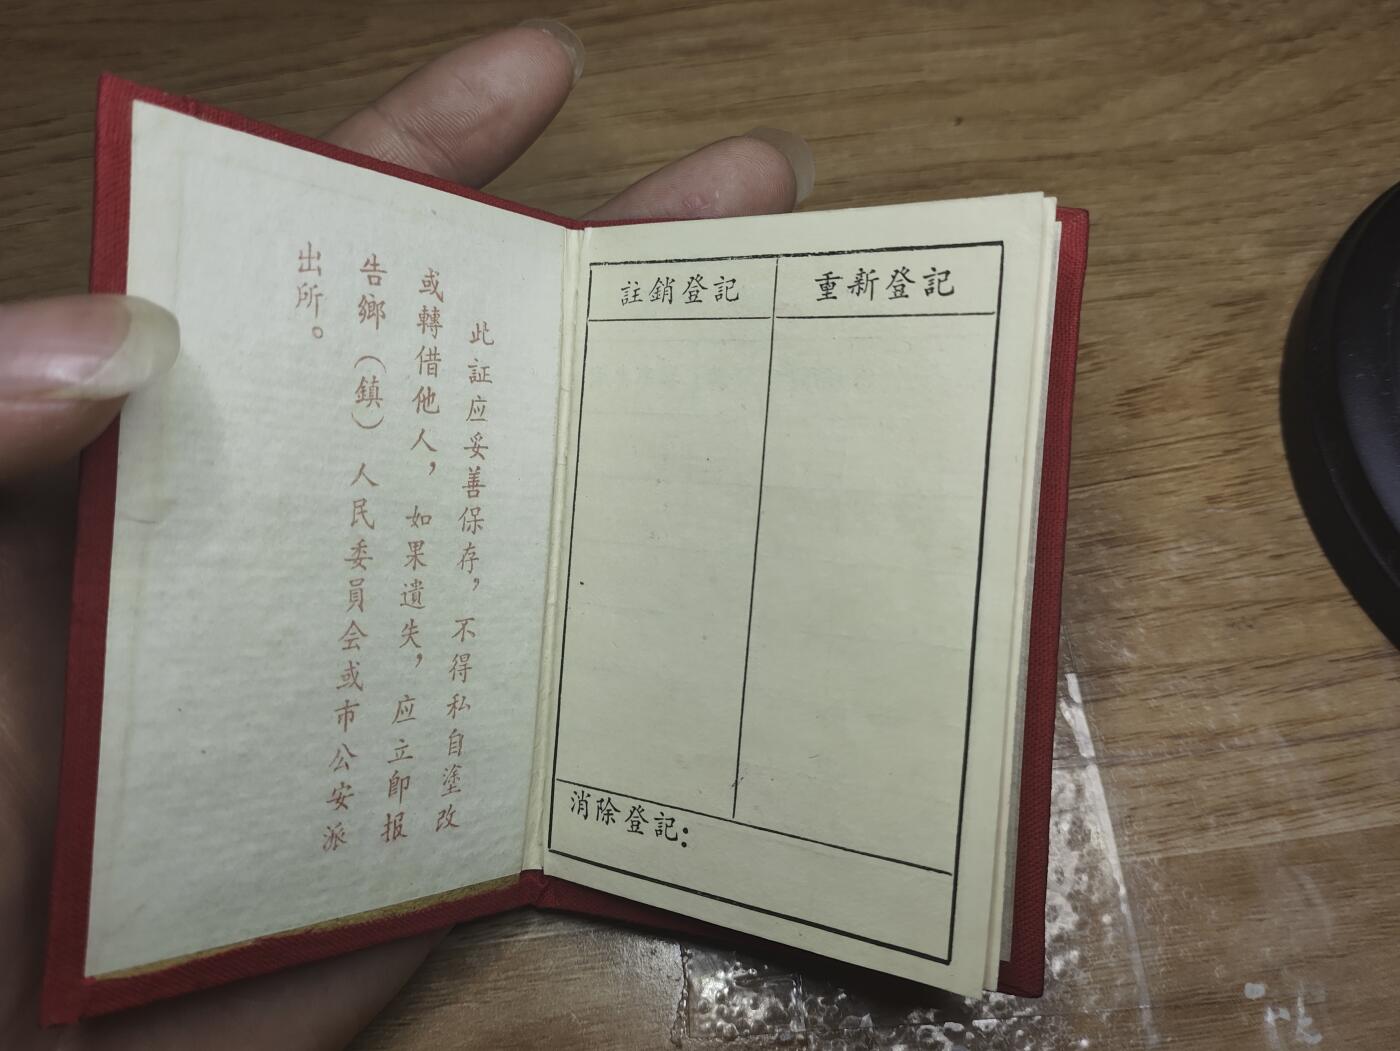 此証应妥善保存，不得私自塗改
或轉借他人，如果遺失，应立即报
告鄉（鎮）人民委員会或市公安派
出所。
註銷登記
重新登記
消除登記：